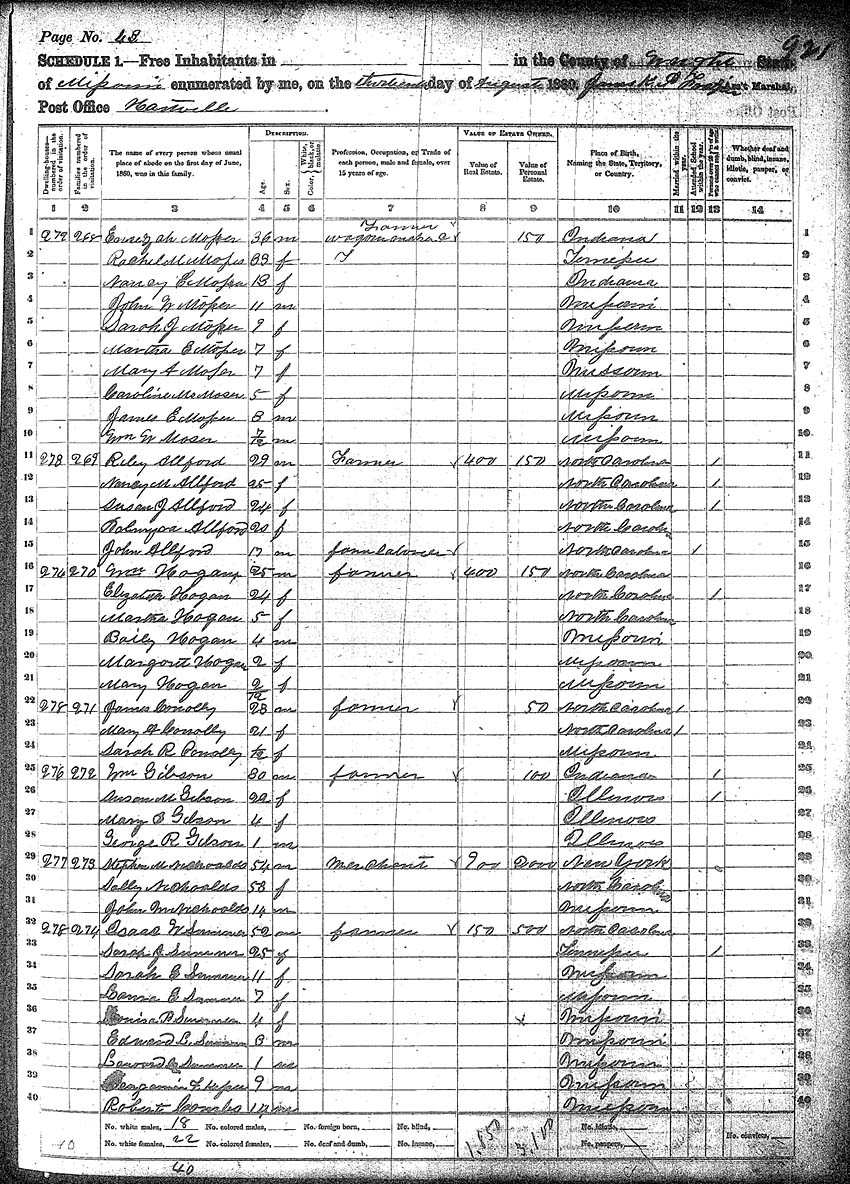 Page No. 48
921
SCHEDULE 1.—Free Inhabitants in in the County of Wright State
of Missouri enumerated by me, on the thirteenth day of August 1860. James K. P. Ass't Marshal,
Post Office Hartville
Post Office
DESCRIPTION. VALUE OF ESTATE OWNED.
Dwelling-houses—numbered in the order of visitation. Families numbered in the order of visitation. The name of every person whose usual place of abode on the first day of June, 1860, was in this family. Age. Sex. Color, White, black, or mulatto. Profession, Occupation, or Trade of each person, male and female, over 15 years of age. Value of Real Estate. Value of Personal Estate. Place of Birth, Naming the State, Territory, or Country. Married within the year. Attended School within the year. Persons over 20 y'rs of age who cannot read & write. Whether deaf and dumb, blind, insane, idiotic, pauper, or convict.
1 2 3 4 5 6 7 8 9 10 11 12 13 14
1 272 268 Moser 36 m Farmer 150 Indiana 1
2 Rachel M Moser 33 f Tennessee 2
3 Nancy E Moser 13 f Indiana 3
4 John W Moser 11 m Missouri 4
5 Sarah J Moser 9 f Missouri 5
6 Martha E Moser 7 f Missouri 6
7 Mary A Moser 7 f Missouri 7
8 Caroline M Moser 5 f Missouri 8
9 James E Moser 3 m Missouri 9
10 Wm W Moser 7/12 m Missouri 10
11 273 269 Riley Allford 29 m Farmer 400 150 North Carolina 1 11
12 Nancy M Allford 25 f North Carolina 1 12
13 Susan J Allford 24 f North Carolina 1 13
14 Allford 20 f North Carolina 14
15 John Allford 17 m farm laborer North Carolina 1 15
16 274 270 Wm Hogan 25 m farmer 400 150 North Carolina 16
17 Elizabeth Hogan 24 f North Carolina 1 17
18 Martha Hogan 5 f North Carolina 18
19 Baily Hogan 4 m Missouri 19
20 Margaret Hogan 2 f Missouri 20
21 Mary Hogan 2/12 f Missouri 21
22 275 271 James Conolly 23 m farmer 50 North Carolina 1 22
23 Mary A Conolly 21 f North Carolina 1 23
24 Sarah R Conolly f Missouri 24
25 276 272 Wm Gibson 30 m farmer 100 Indiana 1 25
26 Susan M Gibson 22 f Illinois 1 26
27 Mary E Gibson 4 f Illinois 27
28 George R Gibson 1 m Illinois 28
29 277 273 Stephen M Nichoalds 54 m Merchant 900 2000 New York 29
30 Sally Nichoalds 53 f North Carolina 30
31 John M Nichoalds 14 m Missouri 31
32 278 274 Isaac W Summer 52 m farmer 150 500 North Carolina 32
33 Sarah J Summer 25 f Tennessee 1 33
34 Sarah E Summer 11 f Missouri 34
35 E Summer 7 f Missouri 35
36 Louisa P Summer 4 f Missouri 36
37 Edward L Summer 3 m Missouri 37
38 Summer 1 Missouri 38
39 Benjamin F 9 m Missouri 39
40 Robert m Missouri 40
No. white males, 18 No. colored males, No. foreign born, No. blind, 1,850 3,100 No. idiotic,
No. white females, 22 No. colored females, No. deaf and dumb, No. insane, No. paupers, No. convicts,
40
40